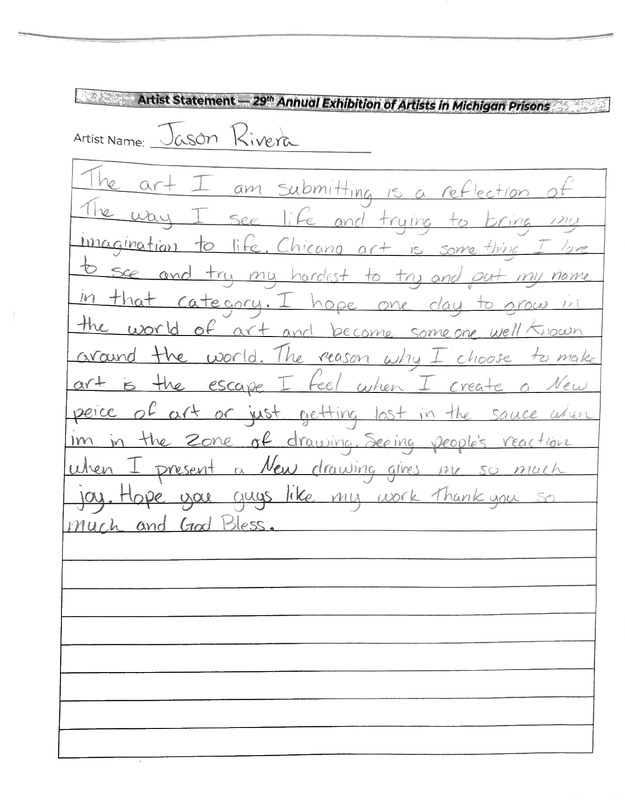 Artist Statement — 29th Annual Exhibition of Artists in Michigan Prisons
Artist Name: Jason Rivera
The art I am submitting is a reflection of
The way I see life and trying to bring my
imagination to life. Chicano art is something I love
to see and try my hardest to try and put my name
in that category. I hope one day to grow in
the world of art and become someone well known
around the world. The reason why I choose to make
art is the escape I feel when I create a New
peice of art or just getting lost in the sauce when
im in the zone of drawing. Seeing people's reaction
when I present a New drawing gives me so much
joy. Hope you guys like my work Thank you so
much and God Bless.